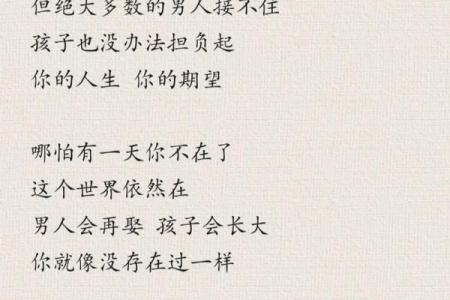 但绝大多数的男人接不住
孩子也没办法担负起
你的人生 你的期望
哪怕有一天你不在了
这个世界依然在
男人会再娶 孩子会长大
你就像没存在过一样